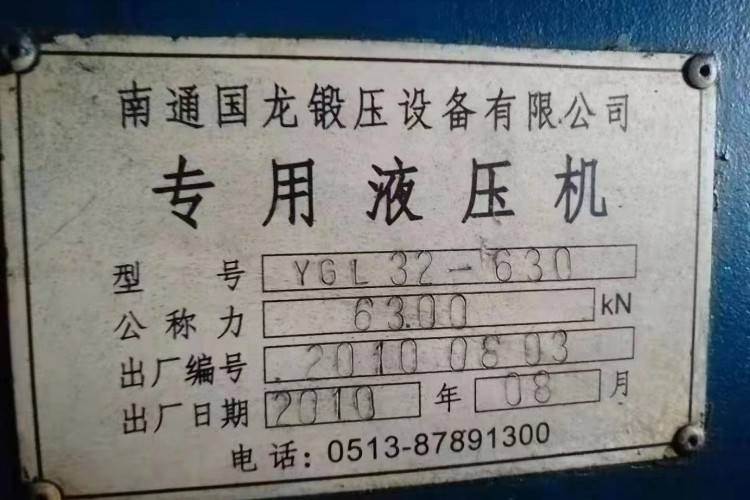 南通国龙锻压设备有限公司
专用液压机
型号 YGL32-630
公称力 6300 kN
出厂编号 20100803
出厂日期 2010 年 08 月
电话：0513-87891300